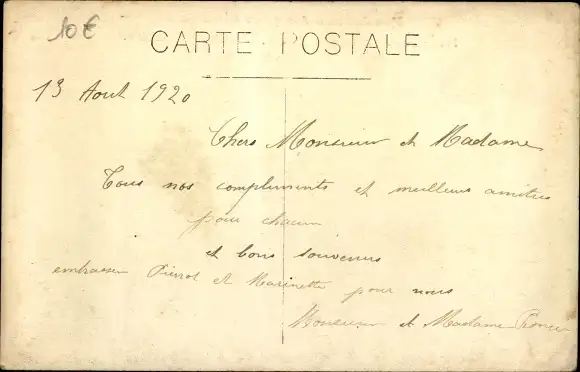 10€
CARTE POSTALE
13 Aout 1920
Chers Monsieur et Madame
Tous nos compliments et meilleurs amitiés
pour chacun
et bons souvenirs
embrasser Pierrot et Marinette pour nous
Monsieur et Madame